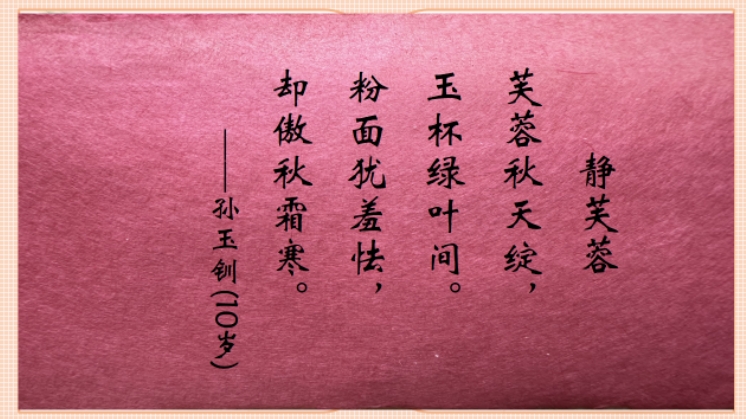 静芙蓉
芙蓉秋天绽，
玉杯绿叶间。
粉面犹羞怯，
却傲秋霜寒。
——孙玉钏(10岁)